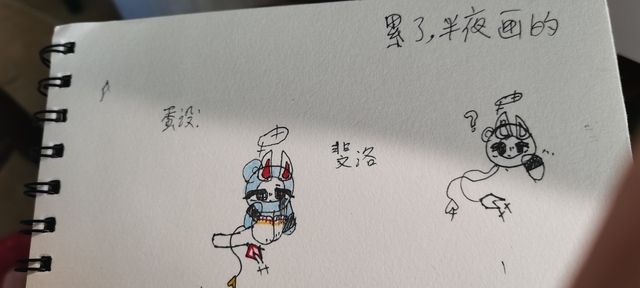 累了,半夜画的
蛋设:
斐洛
?